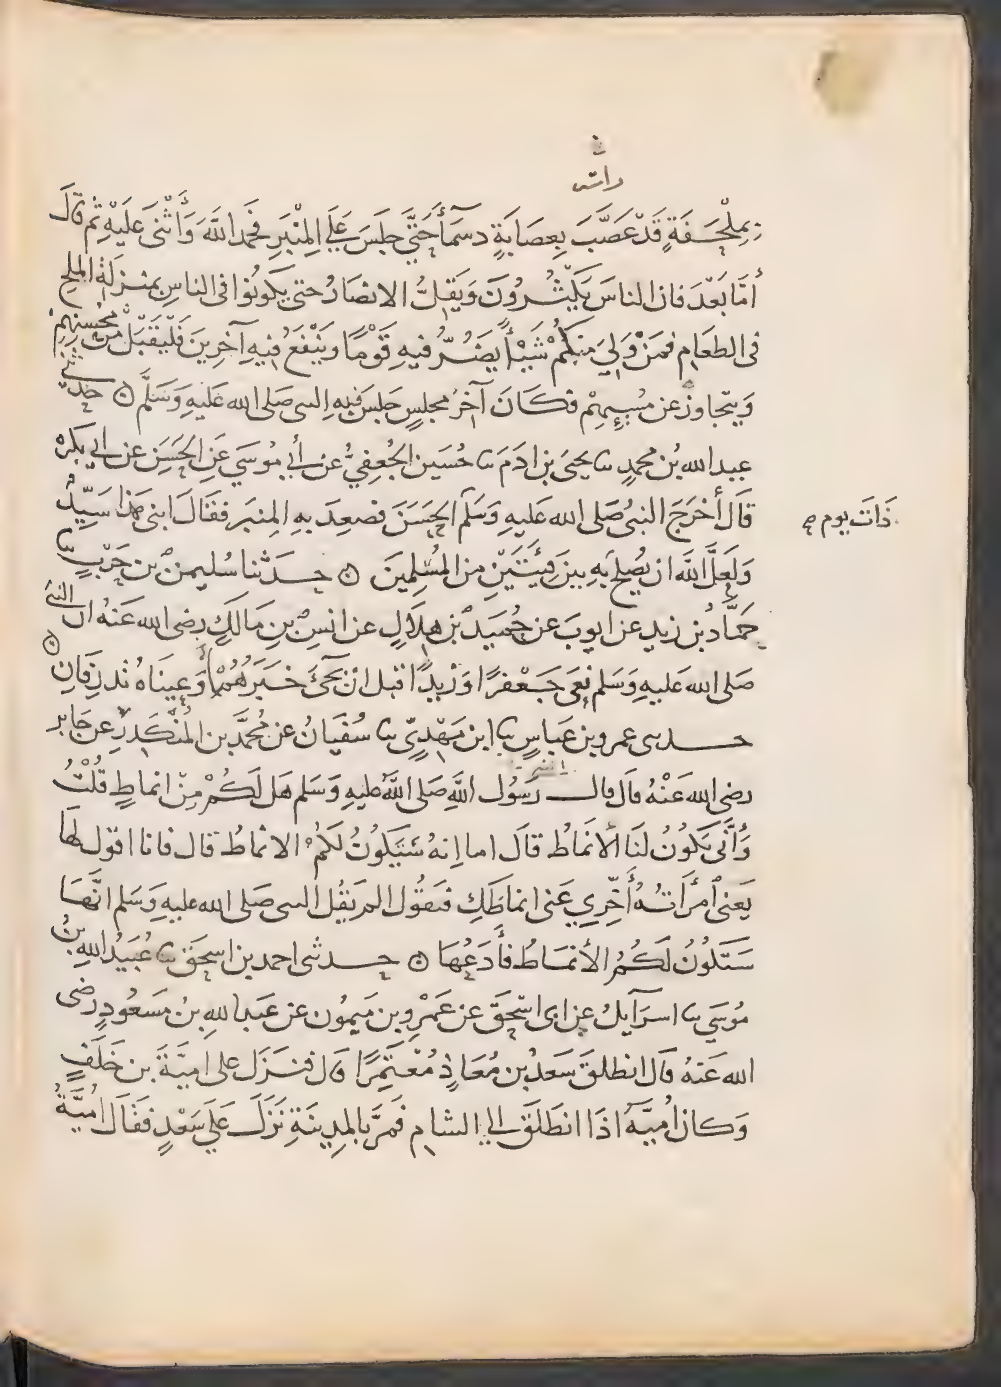 بِمِلْحَفَةٍ قَدْ عَصَّبَ بِعِصَابَةٍ دسمَآءَ حَتَّى جلَسَ عَلَى المِنْبَرِ فَحَمِدَ اللهَ وَأَثْنَى عَلَيْهِ ثُم قَالَ
أمَّا بَعْدَ فان الناسَ يَكْثُرُونَ وَيَقِلُّ الانصَارُ حتى يكونُوا فى الناسِ بمنزلةِ الملحِ
فى الطعَامِ فمَنْ وَلِىَ مِنكُمْ شَيْأً يضُرُّ فيهِ قَوْمًا وَيَنْفَعُ فيهِ آخرينَ فَلْيَقبَلْ مِن مُحْسِنِهِمْ
وَيتجاوزْ عن مُسِيئِهِمْ فكَانَ آخرُ مجلسٍ جلسَ فيهِ النبى صَلى الله عَليهِ وَسَلَّم ۞ حدثنى
عبد الله بْن محمدٍ نا يحيَى بن ادَمَ نا حُسَين الجُعفِىُّ عن أبى مُوسَى عَنِ الحَسَنِ عن ابى بكرة
قَال أخرَجَ النبىُ صَلى الله عَليهِ وَسَلم الحسَنَ فصَعِدَ بهِ المِنبَر فقَالَ ابنى هَذا سَيِّدٌ
ذَاتَ يوم صح
وَلَعلَّ اللهَ ان يُصْلِحَ بهِ بينَ فِئَتَيْنِ منَ المُسْلِمينَ ۞ حدثنا سُليمن بن حَرْبٍ نا
حمَّادُ بن زيدٍ عن ايوبَ عن حُميَد بن هِلَالٍ عن انسِ بنِ مَالكٍ رضى الله عَنهُ ان النبىَ
صَلى الله عَليهِ وَسَلم نَعى جَعْفرًا وَزيدًا قبلَ ان يجىَ خَبَرُهُمْ وَعينَاهُ تذرِفانِ ۞
حدثنى عمرو بن عَباسٍ نا ابن مَهْدىٍّ نا سُفيَانُ عن مُحمَّد بن المُنْكَدِرِ عن جَابر
رضى الله عَنْهُ قال قال رَسُول اللهِ صَلى اللهُ عليهِ وَسَلم هَل لَكُمْ مِنْ انماطٍ قُلْتُ
وَأنَّى يَكُونُ لَنَا الأنمَاطُ قالَ اما إنهُ سَتَكُونُ لَكُمُ الانماطُ قال فانا اقول لهَا
يَعنى امرَأتهُ أَخِّرِى عَنى انماطَكِ فتقُول الم يَقُل النبى صَلى الله عليهِ وَسَلم انَّهَا
سَتَكُونُ لَكُمُ الأنمَاطُ فأَدَعُهَا ۞ حدثنى احمد بن اسحَق نا عُبَيدُ اللهِ بنُ
مُوسَى نا اسرَآيلُ عن ابى اسْحَقَ عن عَمْرِو بن مَيمُون عن عَبد اللهِ بنِ مَسعُودٍ رضى
الله عَنهُ قال انطلقَ سَعدُ بن مُعَاذٍ مُعْتَمِرًا قال فنزَلَ على اميَّةَ بن خَلَفٍ
وَكان اُميَّةُ اذَا انطَلَقَ الى الشامِ فَمرَّ بالمدِينَةِ نَزَلَ عَلَى سَعْدٍ فقَالَ اُميَّةُ